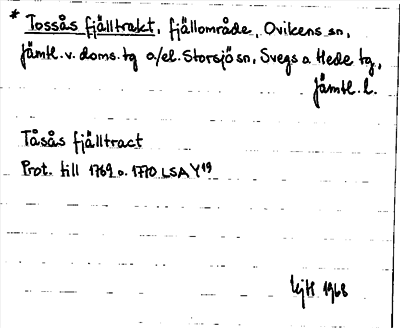 * Tossås fjälltrakt, fjällområde, Ovikens sn,
Jämtl. v. doms. tg a/el. Storsjö sn, Svegs o. Hede tg,
Jämtl. l.
Tåsås fjälltract
Prot. till 1769 o. 1770 LSA Y19
1968